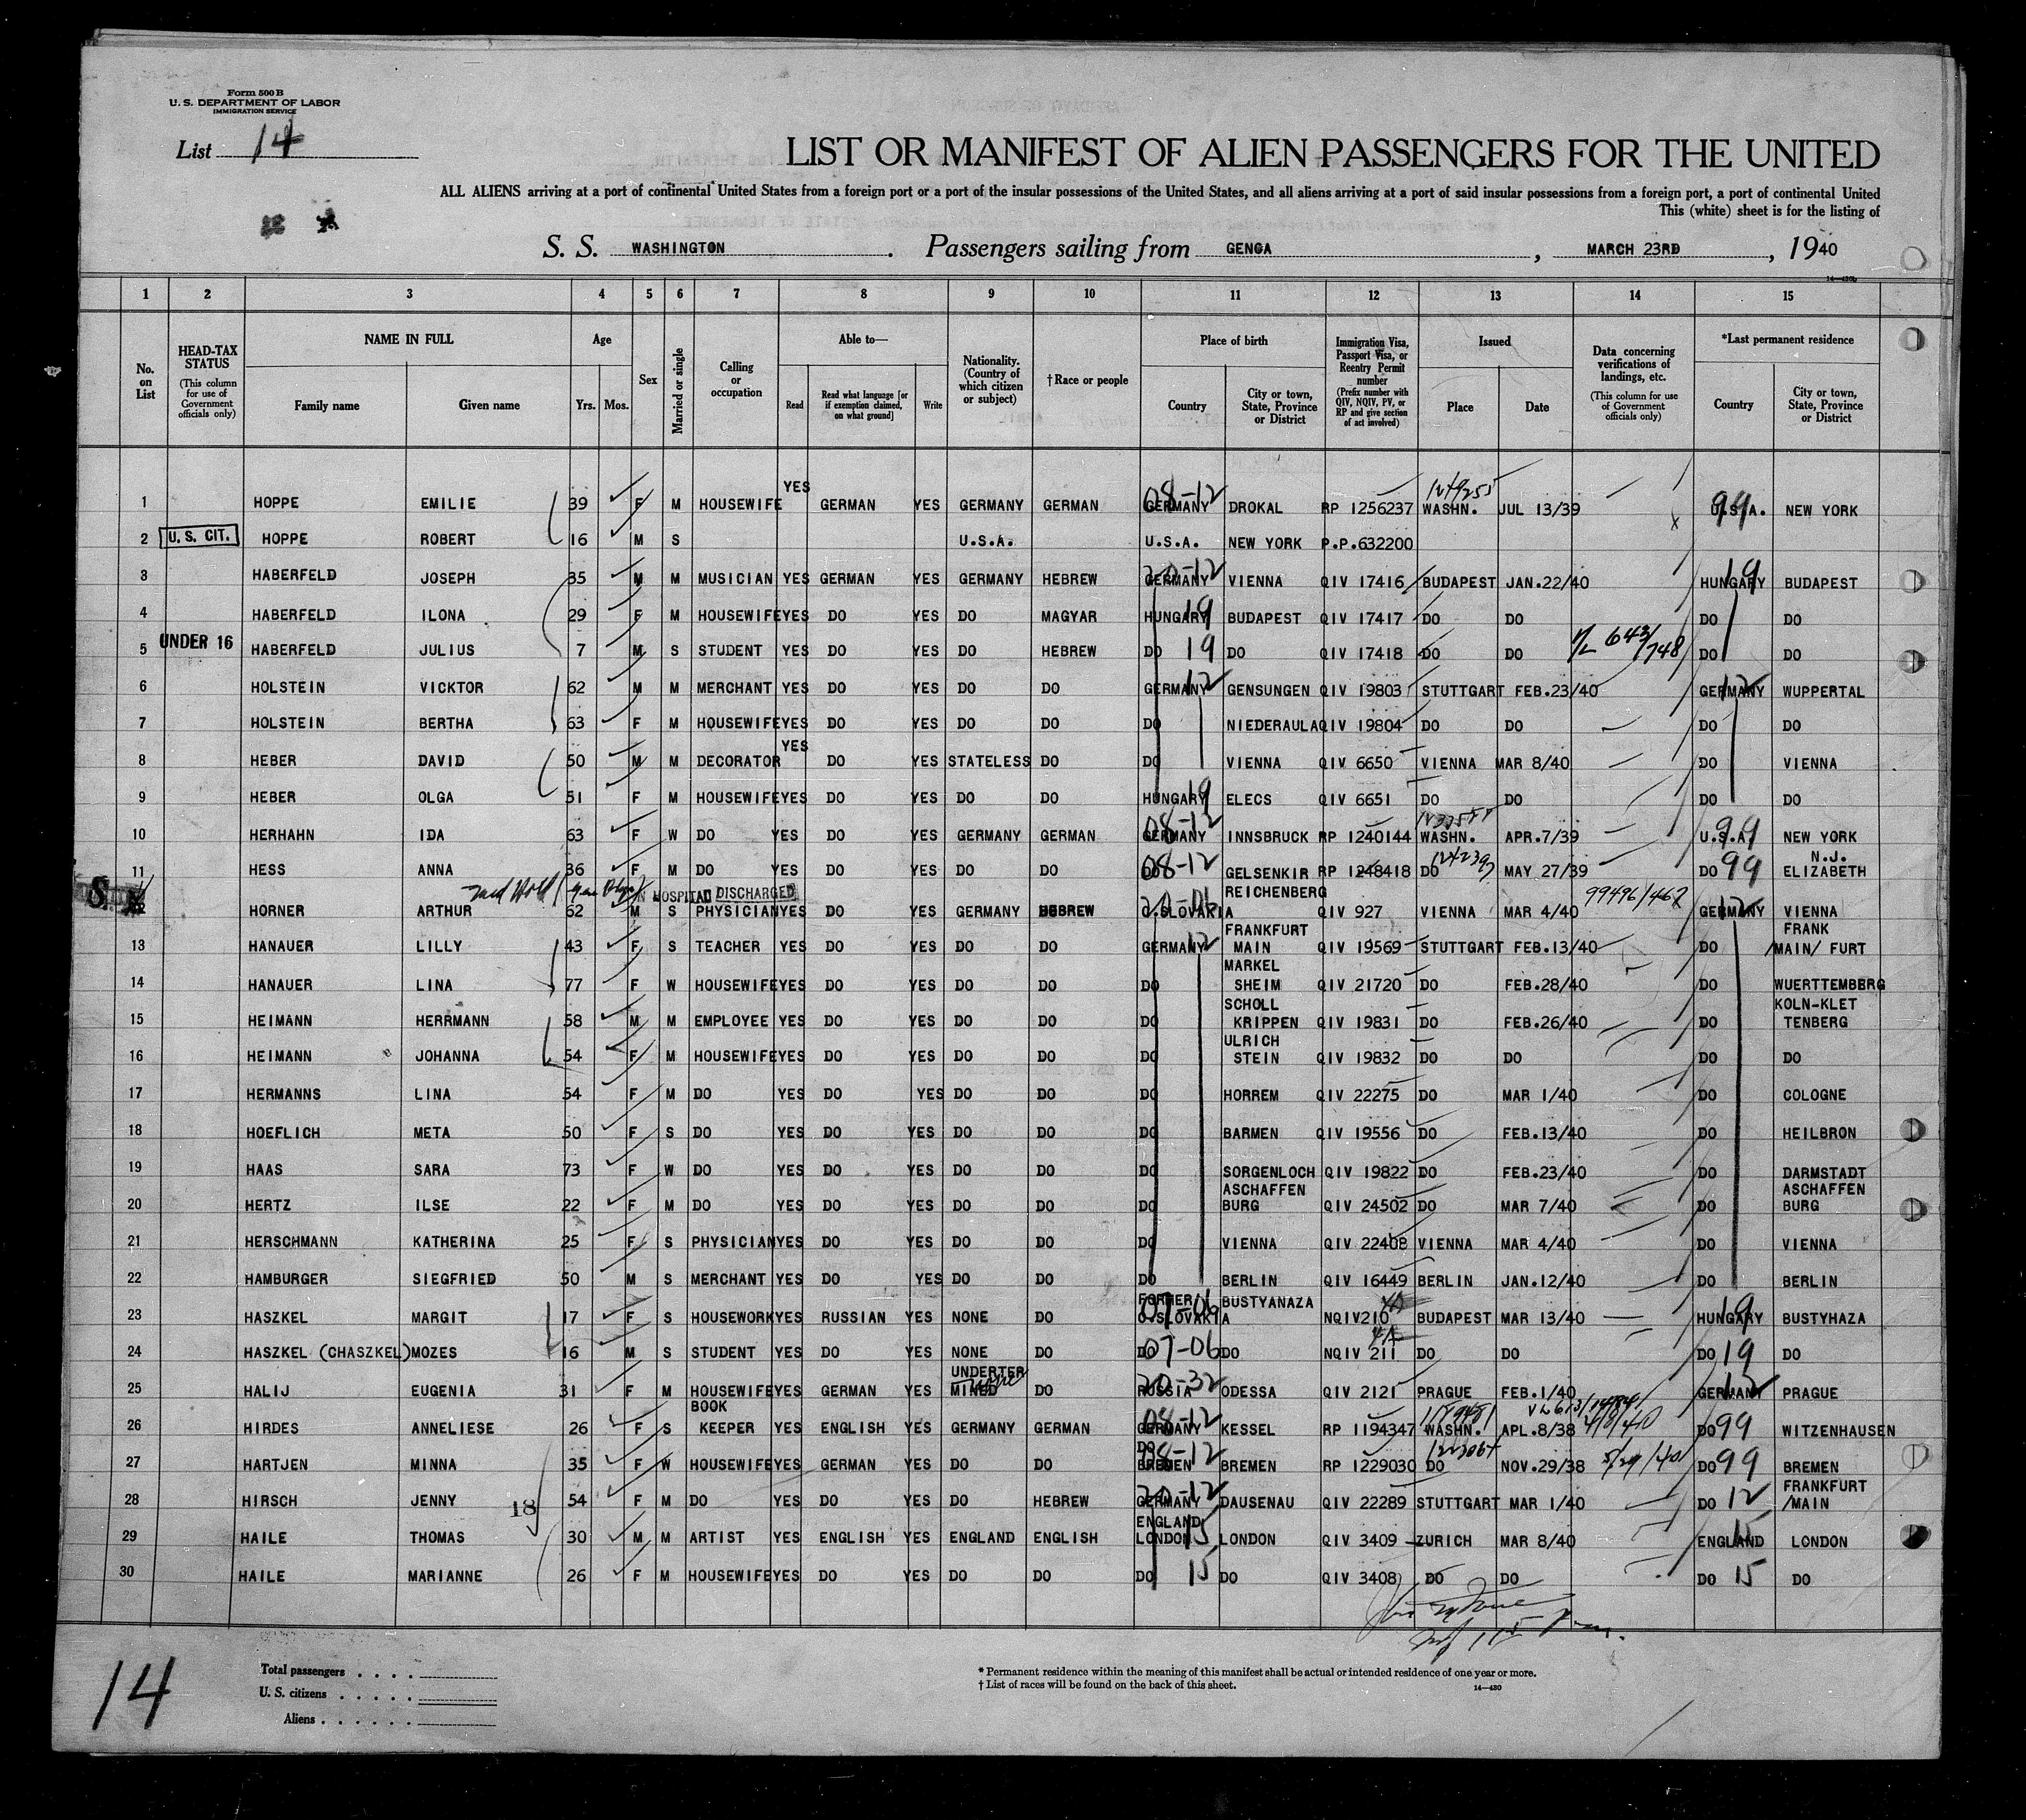 Form 500 B
U. S. DEPARTMENT OF LABOR
IMMIGRATION SERVICE
List 14
LIST OR MANIFEST OF ALIEN PASSENGERS FOR THE UNITED
ALL ALIENS arriving at a port of continental United States from a foreign port or a port of the insular possessions of the United States, and all aliens arriving at a port of said insular possessions from a foreign port, a port of continental United
This (white) sheet is for the listing of
S. S. WASHINGTON. Passengers sailing from GENOA, MARCH 23RD, 1940
1 2 3 4 5 6 7 8 9 10 11 12 13 14 15
No. on List
HEAD-TAX STATUS (This column for use of Government officials only)
NAME IN FULL Family name Given name
Age Yrs. Mos.
Sex
Married or single
Calling or occupation
Able to— Read Read what language [or if exemption claimed, on what ground] Write
Nationality. (Country of which citizen or subject)
† Race or people
Place of birth Country City or town, State, Province or District
Immigration Visa, Passport Visa, or Reentry Permit number (Prefix number with QIV, NQIV, PV, or RP and give section of act involved)
Issued Place Date
Data concerning verifications of landings, etc. (This column for use of Government officials only)
*Last permanent residence Country City or town, State, Province or District
1 HOPPE EMILIE 39 F M HOUSEWIFE YES GERMAN YES GERMANY GERMAN GERMANY 08-12 DROKAL RP 1256237 WASHN. JUL 13/39 U.S.A. 99 NEW YORK
2 U. S. CIT. HOPPE ROBERT 16 M S U.S.A. U.S.A. NEW YORK P.P.632200
3 HABERFELD JOSEPH 35 M M MUSICIAN YES GERMAN YES GERMANY HEBREW GERMANY 20-12 VIENNA QIV 17416 BUDAPEST JAN.22/40 HUNGARY 19 BUDAPEST
4 HABERFELD ILONA 29 F M HOUSEWIFE YES DO YES DO MAGYAR HUNGARY 19 BUDAPEST QIV 17417 DO DO DO DO
5 UNDER 16 HABERFELD JULIUS 7 M S STUDENT YES DO YES DO HEBREW DO 19 DO QIV 17418 DO DO V/L 643/748 DO DO
6 HOLSTEIN VICKTOR 62 M M MERCHANT YES DO YES DO DO GERMANY 12 GENSUNGEN QIV 19803 STUTTGART FEB.23/40 GERMANY 12 WUPPERTAL
7 HOLSTEIN BERTHA 63 F M HOUSEWIFE YES DO YES DO DO DO NIEDERAULA QIV 19804 DO DO DO DO
8 HEBER DAVID 50 M M DECORATOR YES DO YES STATELESS DO DO VIENNA QIV 6650 VIENNA MAR 8/40 DO VIENNA
9 HEBER OLGA 51 F M HOUSEWIFE YES DO YES DO DO HUNGARY 19 ELECS QIV 6651 DO DO DO DO
10 HERHAHN IDA 63 F W DO YES DO YES GERMANY GERMAN GERMANY 08-12 INNSBRUCK RP 1240144 WASHN. APR.7/39 U.S.A. 99 NEW YORK
11 HESS ANNA 36 F M DO YES DO YES DO DO DO 08-12 GELSENKIR RP 1248418 DO MAY 27/39 DO 99 N.J. ELIZABETH
IN HOSPITAL DISCHARGED
12 HORNER ARTHUR 62 M S PHYSICIAN YES DO YES GERMANY HEBREW C.SLOVAKIA 20-06 REICHENBERG QIV 927 VIENNA MAR 4/40 99496/462 GERMANY 12 VIENNA
13 HANAUER LILLY 43 F S TEACHER YES DO YES DO DO GERMANY 12 FRANKFURT MAIN QIV 19569 STUTTGART FEB.13/40 DO FRANK MAIN/ FURT
14 HANAUER LINA 77 F W HOUSEWIFE YES DO YES DO DO DO MARKEL SHEIM QIV 21720 DO FEB.28/40 DO WUERTTEMBERG
15 HEIMANN HERRMANN 58 M M EMPLOYEE YES DO YES DO DO DO SCHOLL KRIPPEN QIV 19831 DO FEB.26/40 DO KOLN-KLET TENBERG
16 HEIMANN JOHANNA 54 F M HOUSEWIFE YES DO YES DO DO DO ULRICH STEIN QIV 19832 DO DO DO DO
17 HERMANNS LINA 54 F M DO YES DO YES DO DO DO HORREM QIV 22275 DO MAR 1/40 DO COLOGNE
18 HOEFLICH META 50 F S DO YES DO YES DO DO DO BARMEN QIV 19556 DO FEB.13/40 DO HEILBRON
19 HAAS SARA 73 F W DO YES DO YES DO DO DO SORGENLOCH QIV 19822 DO FEB.23/40 DO DARMSTADT
20 HERTZ ILSE 22 F M DO YES DO YES DO DO DO ASCHAFFEN BURG QIV 24502 DO MAR 7/40 DO ASCHAFFEN BURG
21 HERSCHMANN KATHERINA 25 F S PHYSICIAN YES DO YES DO DO DO VIENNA QIV 22408 VIENNA MAR 4/40 DO VIENNA
22 HAMBURGER SIEGFRIED 50 M S MERCHANT YES DO YES DO DO DO BERLIN QIV 16449 BERLIN JAN.12/40 DO BERLIN
23 HASZKEL MARGIT 17 F S HOUSEWORK YES RUSSIAN YES NONE DO FORMER C.SLOVAKIA 07-06 BUSTYANAZA NQIV210 BUDAPEST MAR 13/40 HUNGARY 19 BUSTYHAZA
24 HASZKEL (CHASZKEL) MOZES 16 M S STUDENT YES DO YES NONE DO DO 07-06 DO NQIV 211 DO DO DO 19 DO
25 HALIJ EUGENIA 31 F M HOUSEWIFE YES GERMAN YES UNDERTER MINED DO RUSSIA 20-32 ODESSA QIV 2121 PRAGUE FEB.1/40 GERMANY 12 PRAGUE
26 HIRDES ANNELIESE 26 F S BOOK KEEPER YES ENGLISH YES GERMANY GERMAN GERMANY 08-12 KESSEL RP 1194347 WASHN. APL.8/38 4/8/40 DO 99 WITZENHAUSEN
27 HARTJEN MINNA 35 F W HOUSEWIFE YES GERMAN YES DO DO DO BREMEN 08-12 BREMEN RP 1229030 DO NOV.29/38 5/29/40 DO 99 BREMEN
28 HIRSCH JENNY 18 54 F M DO YES DO YES DO HEBREW GERMANY 20-12 DAUSENAU QIV 22289 STUTTGART MAR 1/40 DO 12 FRANKFURT /MAIN
29 HAILE THOMAS 30 M M ARTIST YES ENGLISH YES ENGLAND ENGLISH ENGLAND LONDON 15 LONDON QIV 3409 ZURICH MAR 8/40 ENGLAND 15 LONDON
30 HAILE MARIANNE 26 F M HOUSEWIFE YES DO YES DO DO DO 15 DO QIV 3408 DO DO DO 15 DO
14
Total passengers . . . .
U. S. citizens . . . . .
Aliens . . . . . .
* Permanent residence within the meaning of this manifest shall be actual or intended residence of one year or more.
† List of races will be found on the back of this sheet.
14—430